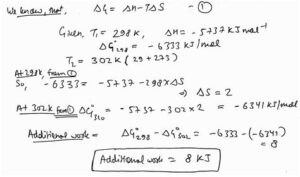 We know, that, ΔG = ΔH-TΔS — ①
Given, T₁ = 298K, ΔH = -5737 KJ mol⁻¹
ΔG°₂₉₈ = -6333 KJ/mol
T₂ = 302K (29+273)
At 298K, from ①
So, -6333 = -5737 - 298×ΔS
⇒ ΔS = 2
At 302K from ① ΔG°₃₁₀ = -5737 - 302×2 = -6341 KJ/mol
Additional work = ΔG°₂₉₈ - ΔG°₃₀₂ = -6333 - (-6341)
= 8
Additional work = 8 KJ